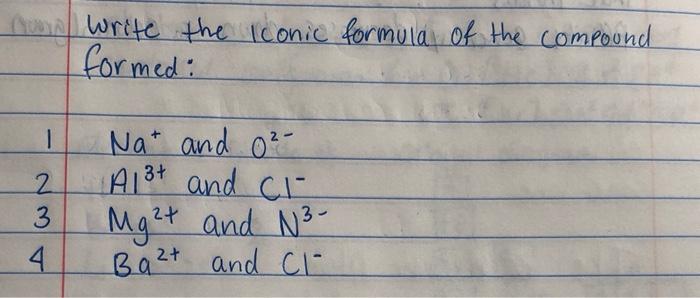 Write the iconic formula of the compound
formed:
1 Na⁺ and O²⁻
2 Al³⁺ and Cl⁻
3 Mg²⁺ and N³⁻
4 Ba²⁺ and Cl⁻